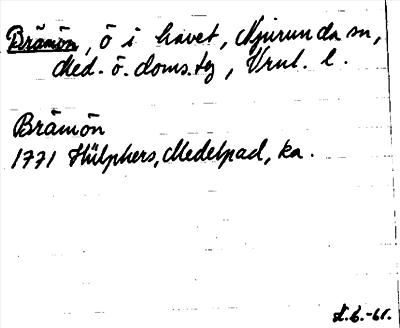 Brämön, ö i havet, Njurunda sn,
Med. ö. doms.tg, Vrnl. l.
Brämön
1771 Hülphers, Medelpad, ka.